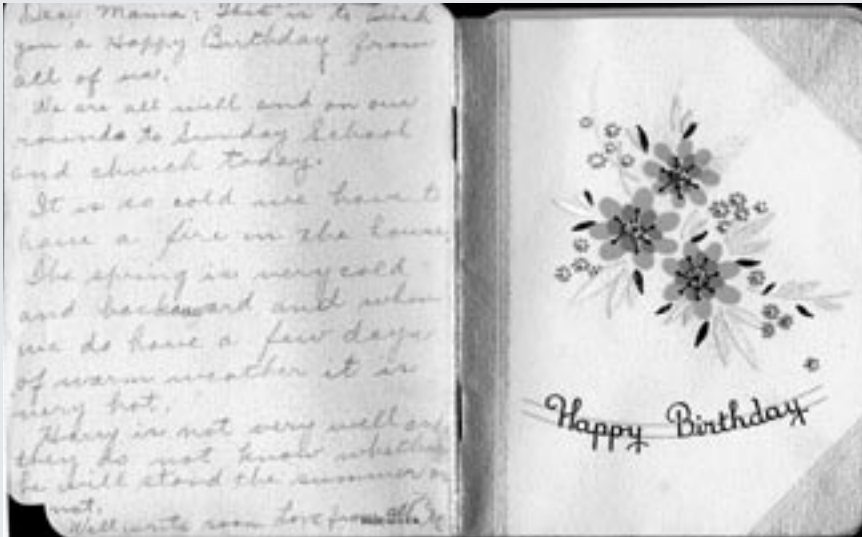 Dear Mama: This is to wish
you a Happy Birthday from
all of us.
We are all well and on our
rounds to Sunday School
and church today.
It is so cold we have to
have a fire in the house.
The spring is very cold
and backward and when
we do have a few days
of warm weather it is
very hot.
Harry is not very well and
they do not know whether
he will stand the summer or
not.
Will write soon Love from
Happy Birthday